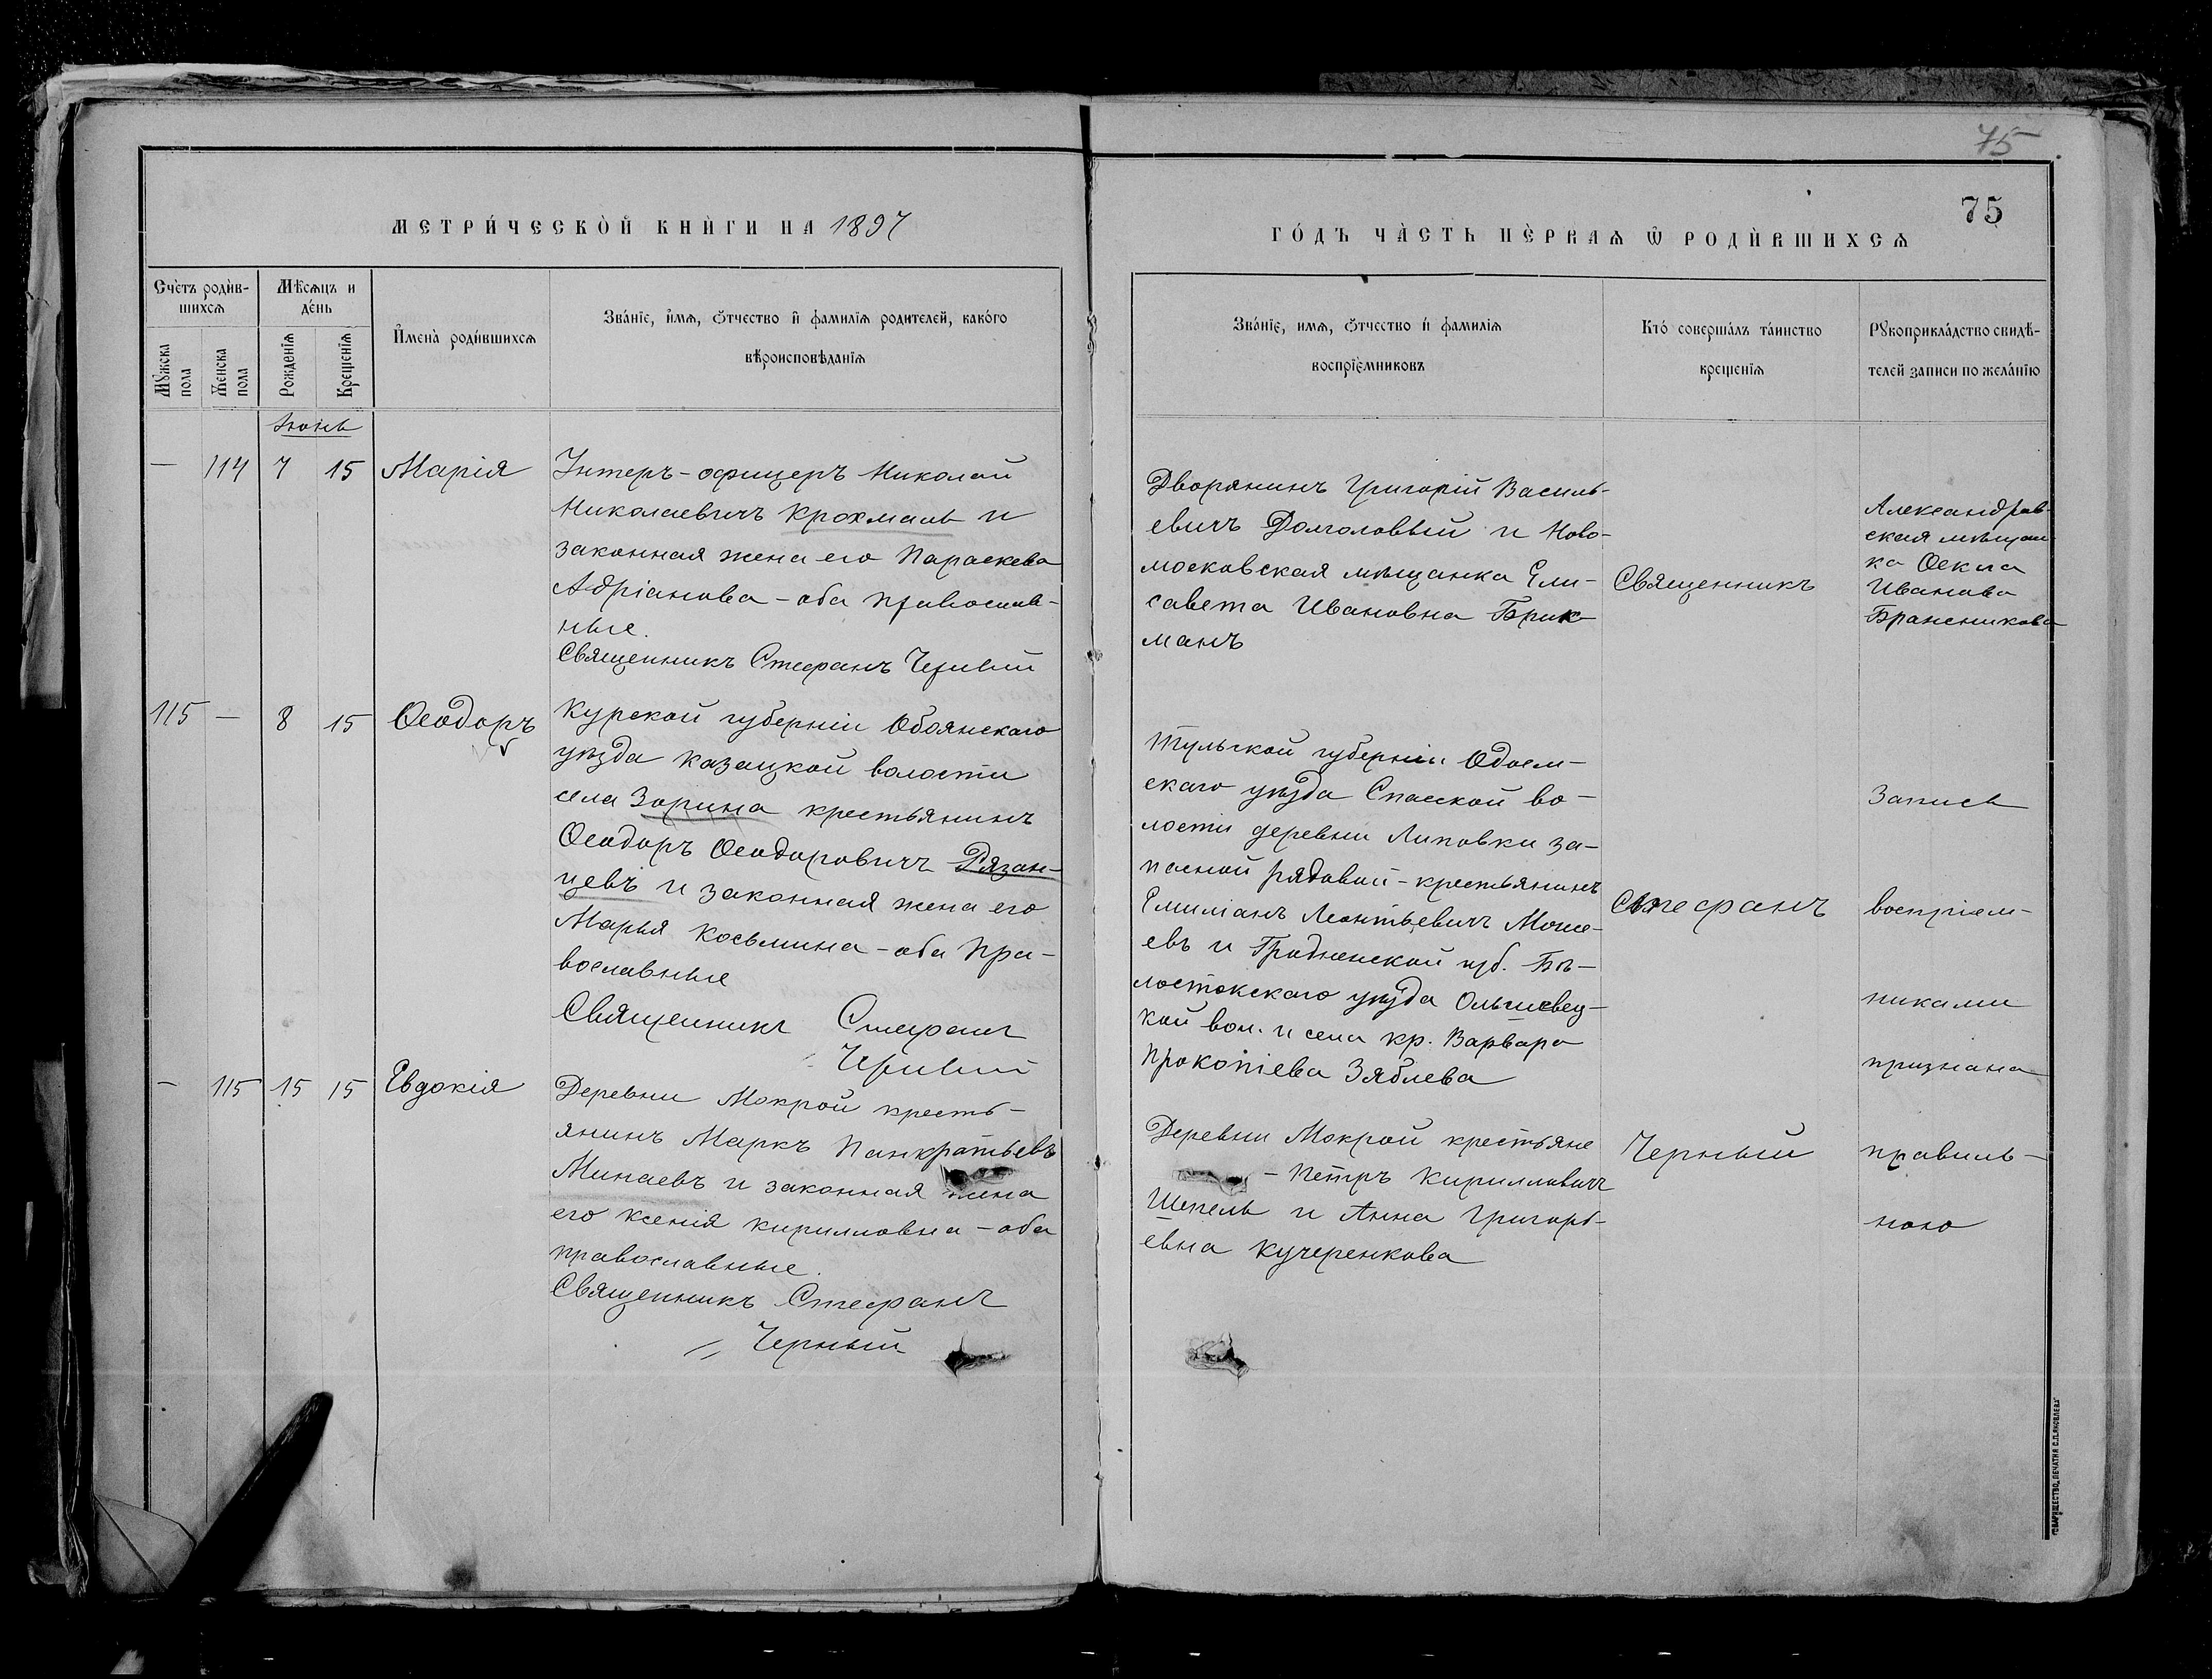 75
75
МЕТРИ́ЧЕСКО̀Й КНЍГИ НА 1897
ГО́ДЪ ЧА̀СТЬ ПЀРВАѦ Ѿ РОДЍВШИХСѦ
Сче́тъ родѝв-
шихсѧ
Мѣ́сѧцъ и
де́нь
Мꙋ́жска
пола
Же́нска
пола
Рожде́нїѧ
Креще́нїѧ
И҆мена̀ роди́вшихсѧ
Зва́нїе, и҆мѧ, ѻ҆́тчество и҆ фами́лїѧ роди́телей, како́го
вѣроисповѣ́данїѧ
Зва́нїе, имѧ, ѻ҆́тчество и҆ фамилїѧ
воспрїе́мниковъ
Кто́ соверша́лъ та́инство
креще́нїѧ
Рꙋкоприкла́дство свидѣ́-
телей записи по жела́нїю
Іюнь
— 114 7 15 Марія
Унтеръ-офицеръ Николай
Николаевичъ Крохмаль и
законная жена его Параскева
Адріанова - оба православ-
ные.
Священникъ Стефанъ Черный
Дворянинъ Григорій Василь-
евичъ Долголовый и Ново-
московская мѣщанка Ели-
савета Ивановна Брик-
манъ
Священникъ
Александров-
ская мѣщан-
ка Ѳекла
Иванова
115 — 8 15 Ѳеодоръ
Курской губерніи Обоянскаго
уѣзда Казацкой волости
села Зорина крестьянинъ
Ѳеодоръ Ѳеодоровичъ Рязан-
цевъ и законная жена его
Марья Косьмина - оба пра-
вославные
Священникъ Стефанъ
Черный
Тульской губерніи Одоев-
скаго уѣзда Спасской во-
лости деревни Липовки за-
пасной рядовой - крестьянинъ
Емиліанъ Леонтьевичъ Моше-
евъ и Гродненской губ. Бѣ-
лостокскаго уѣзда
кой вол. и села кр. Варвара
Прокопіева Зяблева
Стефанъ
Запись
воспріем-
никами
признана
— 115 15 15 Евдокія
Деревни Мокрой кресть-
янинъ Маркъ Панкратьевъ
Минаевъ и законная жена
его Ксенія Кирилловна - оба
православные.
Священникъ Стефанъ
Черный
Деревни Мокрой крестьяне
- Петръ Кирилловичъ
Шепель и Анна Григорь-
евна Кучеренкова
Черный
правиль-
ною
ТОВАРИЩЕСТВО „ПЕЧАТНЯ С.П.ЯКОВЛЕВА“